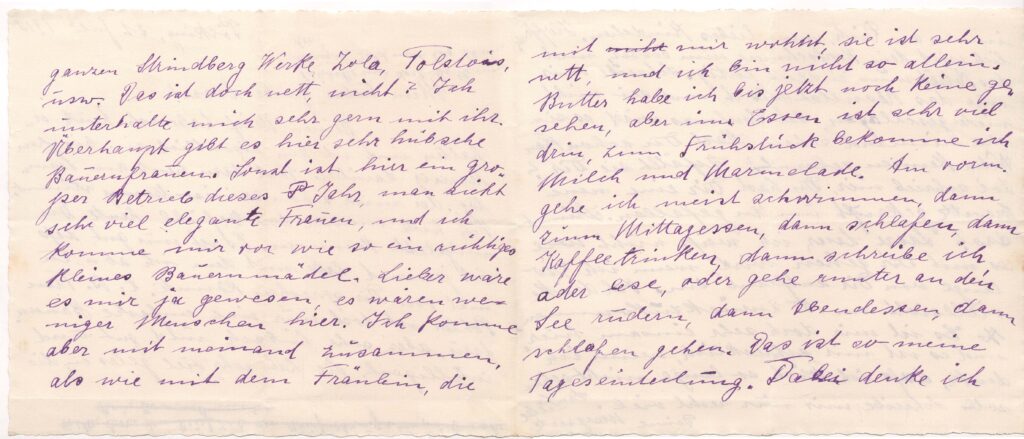 ganzen Strindberg Werke, Zola, Tolstois,
usw. Das ist doch nett, nicht? Ich
unterhalte mich sehr gern mit ihr.
Überhaupt gibt es hier sehr hübsche
Bauernfrauen. Sonst ist hier ein gro-
ßer Betrieb dieses Jahr, man sieht
sehr viel elegante Frauen, und ich
komme mir vor wie so ein richtiges
kleines Bauernmädel. Lieber wäre
es mir ja gewesen, es wären we-
niger Menschen hier. Ich komme
aber mit niemand zusammen,
als wie mit dem Fräulein, die
mit mir wohnt, sie ist sehr
nett, und ich bin nicht so allein.
Butter habe ich bis jetzt noch keine ge-
sehen, aber im Essen ist sehr viel
drin, zum Frühstück bekomme ich
Milch und Marmelade. Am vorm.
gehe ich meist schwimmen, dann
zum Mittagessen, dann schlafen, dann
Kaffeetrinken, dann schreibe ich
oder lese, oder gehe runter an den
See rudern, dann Abendessen, dann
schlafen gehen. Das ist so meine
Tageseinteilung. Dabei denke ich